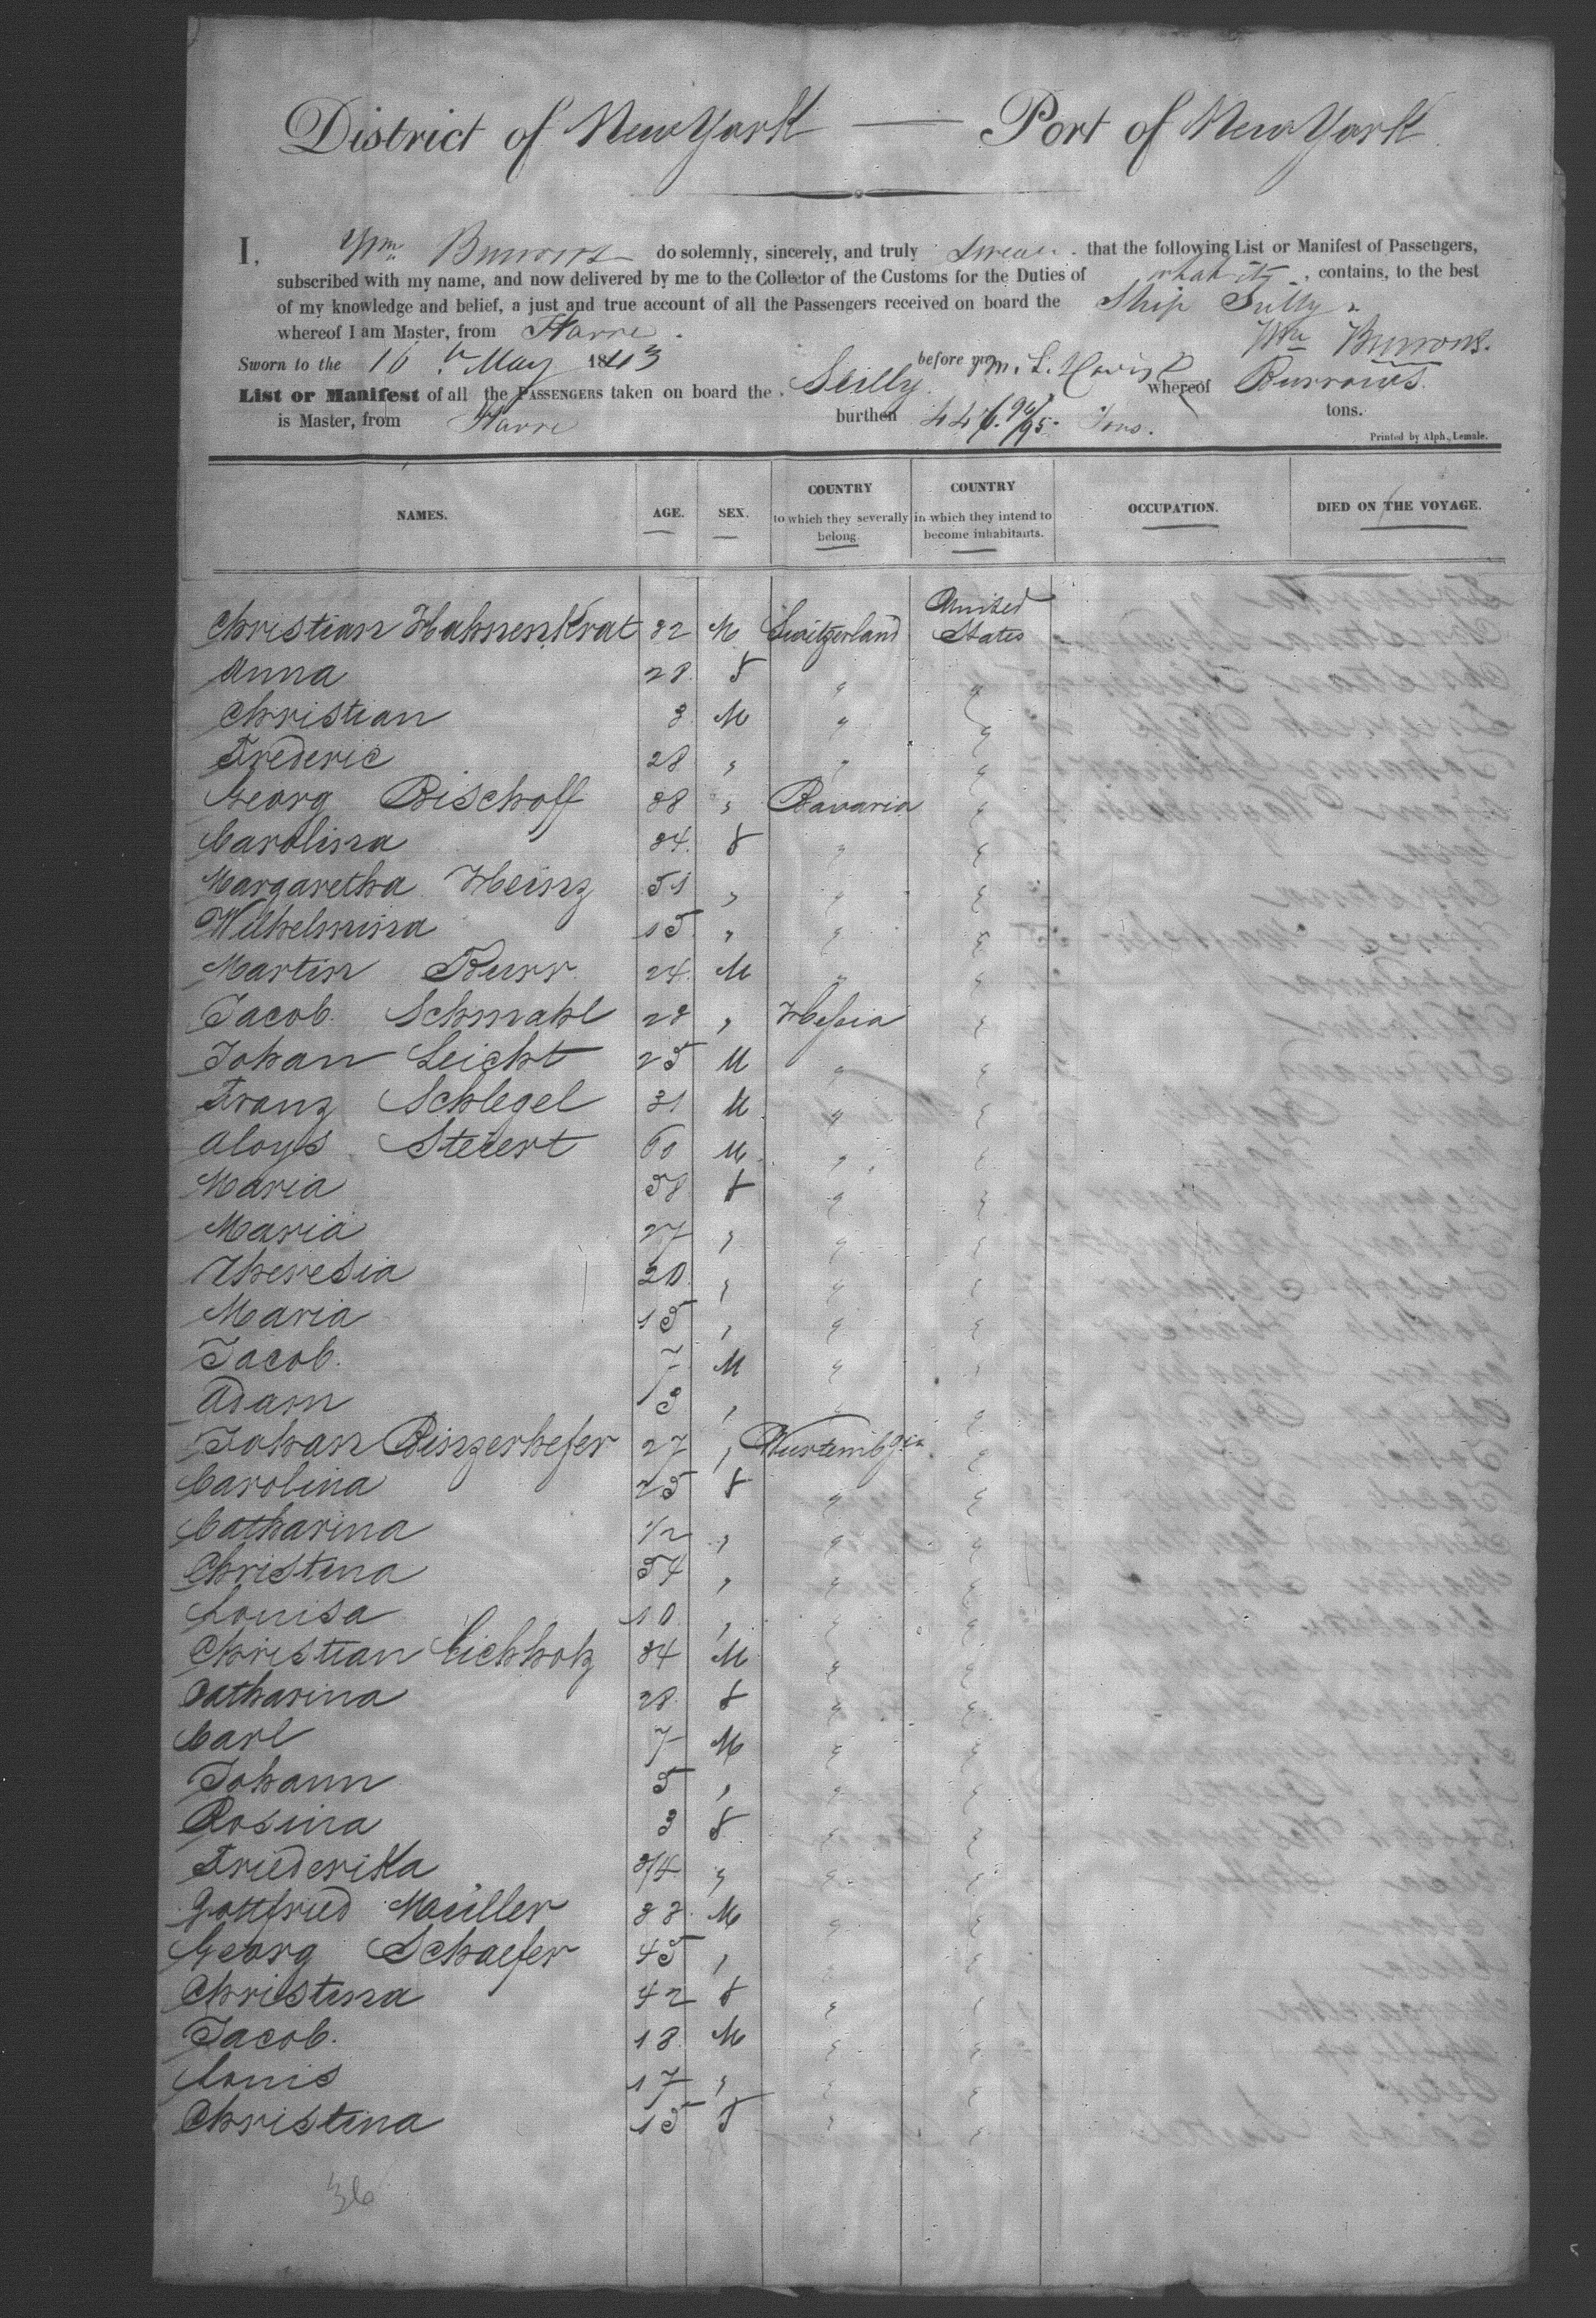 District of New York — Port of New York
I, Wm Burrows do solemnly, sincerely, and truly swear that the following List or Manifest of Passengers,
subscribed with my name, and now delivered by me to the Collector of the Customs for the Duties of , contains, to the best
of my knowledge and belief, a just and true account of all the Passengers received on board the Ship Sully
whereof I am Master, from Havre.
Wm Burrows.
Sworn to the 16th May 1843 before
List or Manifest of all the PASSENGERS taken on board the Scilly whereof Burrows
is Master, from Havre burthen 446 94/95 Tons. tons.
Printed by Alph. Lemale.
NAMES. AGE. SEX. COUNTRY to which they severally belong COUNTRY in which they intend to become inhabitants. OCCUPATION. DIED ON THE VOYAGE.
Christian Hahnenkrat 32 M Switzerland United States
Anna 28 F " "
Christian 3 M " "
Frederic 28 " " "
Georg Bischoff 38 " Bavaria "
Carolina 34 F " "
Margaretha Heinz 51 " " "
Wilhelmina 15 " " "
Martin Burr 24 M " "
Jacob Schmahl 28 " Hessia "
Johan Leicht 25 M " "
Franz Schlegel 31 M " "
Aloys Steiert 60 M " "
Maria 58 F " "
Maria 27 " " "
Theresia 20 " " "
Maria 15 " " "
Jacob. 7 M " "
Adam 3 " " "
Johan Binzerhefer 27 " "
Carolina 25 F " "
Catharina 1/2 " " "
Christina 54 " " "
Louisa 10 " " "
Christian Eichholz 34 M " "
Catharina 28 F " "
Carl 7 M " "
Johann 5 " " "
Rosina 3 F " "
Friederika 3/4 " " "
Gottfried Müller 33 M " "
Georg Schaefer 45 " " "
Christina 42 F " "
Jacob. 18 M " "
Louis 17 " " "
Christina 15 F " "
36